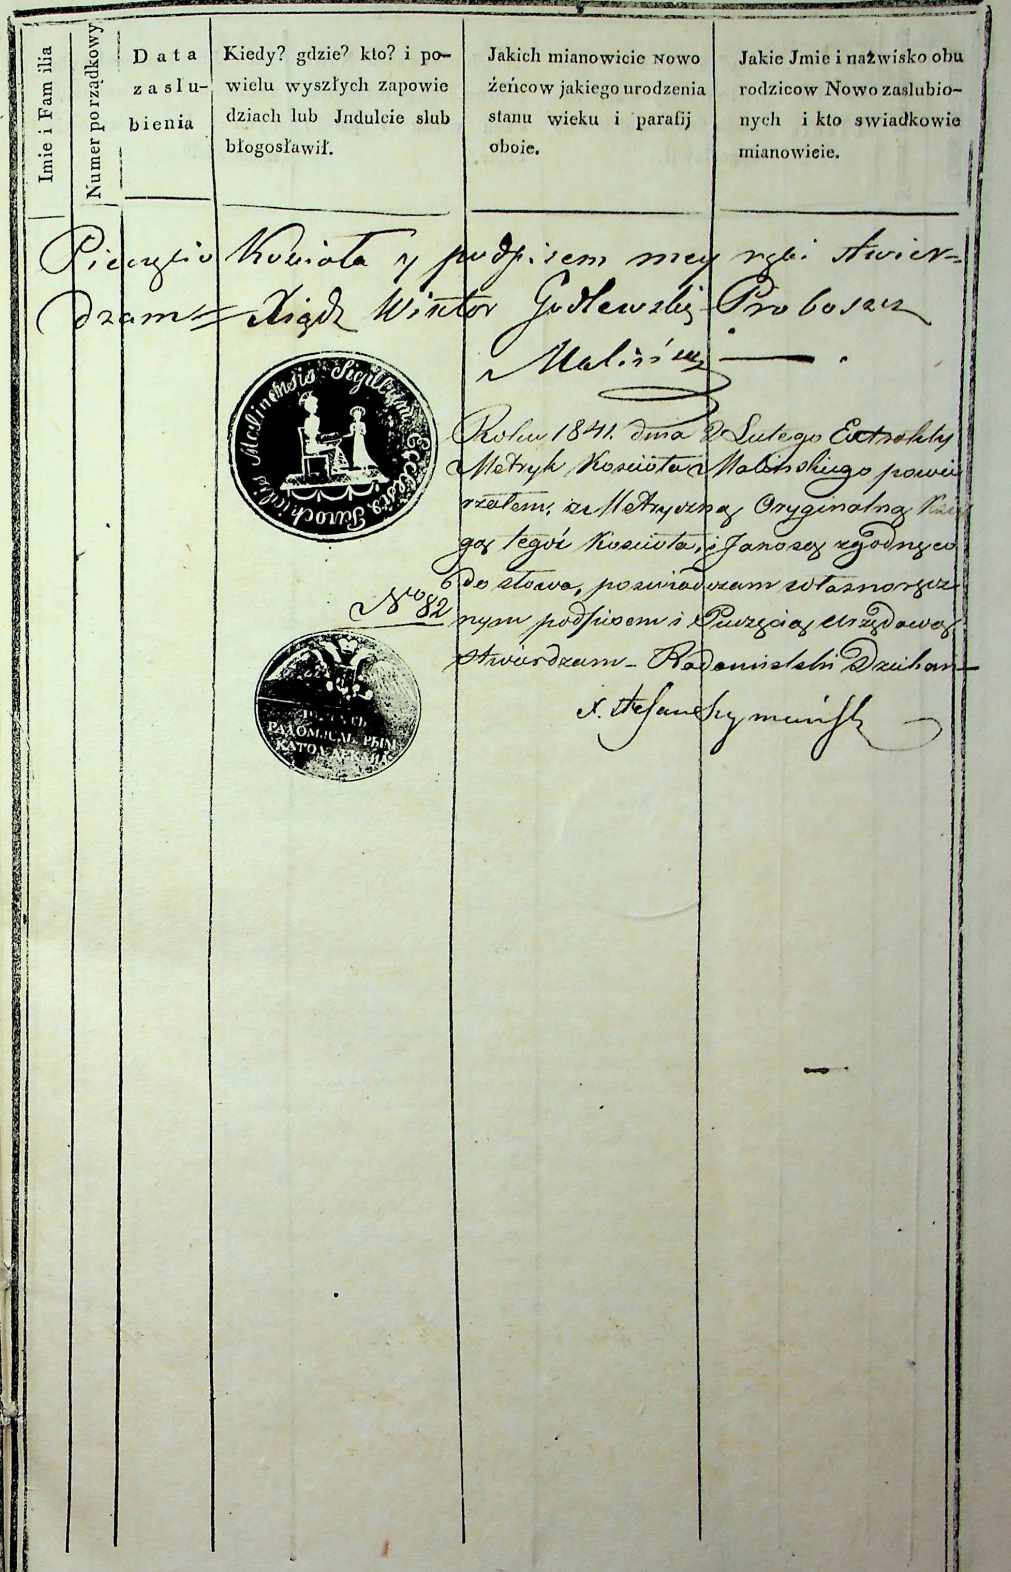 Imie i Fam ilia
Numer porządkowy
Data
zaslu-
bienia
Kiedy? gdzie? kto? i po-
wielu wyszłych zapowie
dziach lub Jndulcie slub
błogosławił.
Jakich mianowicie Nowo
żeńcow jakiego urodzenia
stanu wieku i parafij
oboie.
Jakie Jmie i nażwisko obu
rodzicow Nowo zaslubio-
nych i kto swiadkowie
mianowicie.
Pieczęcio Koscioła y podpisem mey ręki stwier=
dzam = Xiądz Wiktor Godlewski Proboszcz
Maliński
Sigillum Ecclesiæ Parochialis Malinensis
Roku 1841. dnia 2 Lutego Extrakty
Metryk Kościoła Malinskiego powie
rzałem, ze Metryczną Oryginalną Ksie
gą tegoż Kościoła, i znaszą zgodnę co
do słowa, poswiadczam własnoręcz
nym podpisem i Pieczęcią Urzędową
stwierdzam - Radomislski Dziekan
N° 82
РАДОМЫСЛЬ РЫМ
КАТОЛ
X. Stefan Szymański